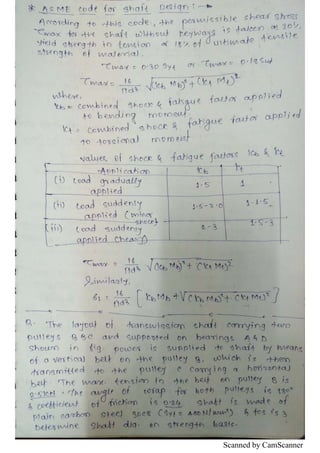 * ASME code for shaft Design :-
According to this code, the permissible shear stress
τmax for the shaft without keyways is taken as 30%
yield strength in tension or 18% of ultimate tensile
strength of material.
τmax = 0.30 Syt or τmax = 0.18 Sut
τmax = 16/πd³ √(kb Mb)² + (kt Mt)²
where,
kb = combined shock & fatigue factor applied
to bending moment.
kt = combined shock & fatigue factor applied
to torsional moment
values of shock & fatigue factors kb & kt
Application kb kt
(i) Load gradually
applied 1.5 1
(ii) Load suddenly
applied (minor
shock) 1.5-2.0 1-1.5
(iii) Load suddenly
applied (heavy) 2-3 1.5-3
τmax = 16/πd³ √(kb Mb)² + (kt Mt)²
Similarly,
σ1 = 16/πd³ [kb Mb + √(kb Mb)² + (kt Mt)²]
Q. The layout of transmission shaft carrying two
pulleys B & C and supported on bearings A & D
shown in fig. power is supplied to shaft by means
of a vertical belt on the pulley B, which is then
transmitted to the pulley C carrying a horizontal
belt. The max. tension in the belt on pulley B is
2.5 kN. The angle of wrap for both pulleys is 180°
& coefficient of friction is 0.24. Shaft is made of
plain carbon steel 30C8 (Syt = 400 N/mm²) & fos is 3
Determine shaft dia. on strength basis.
Scanned by CamScanner